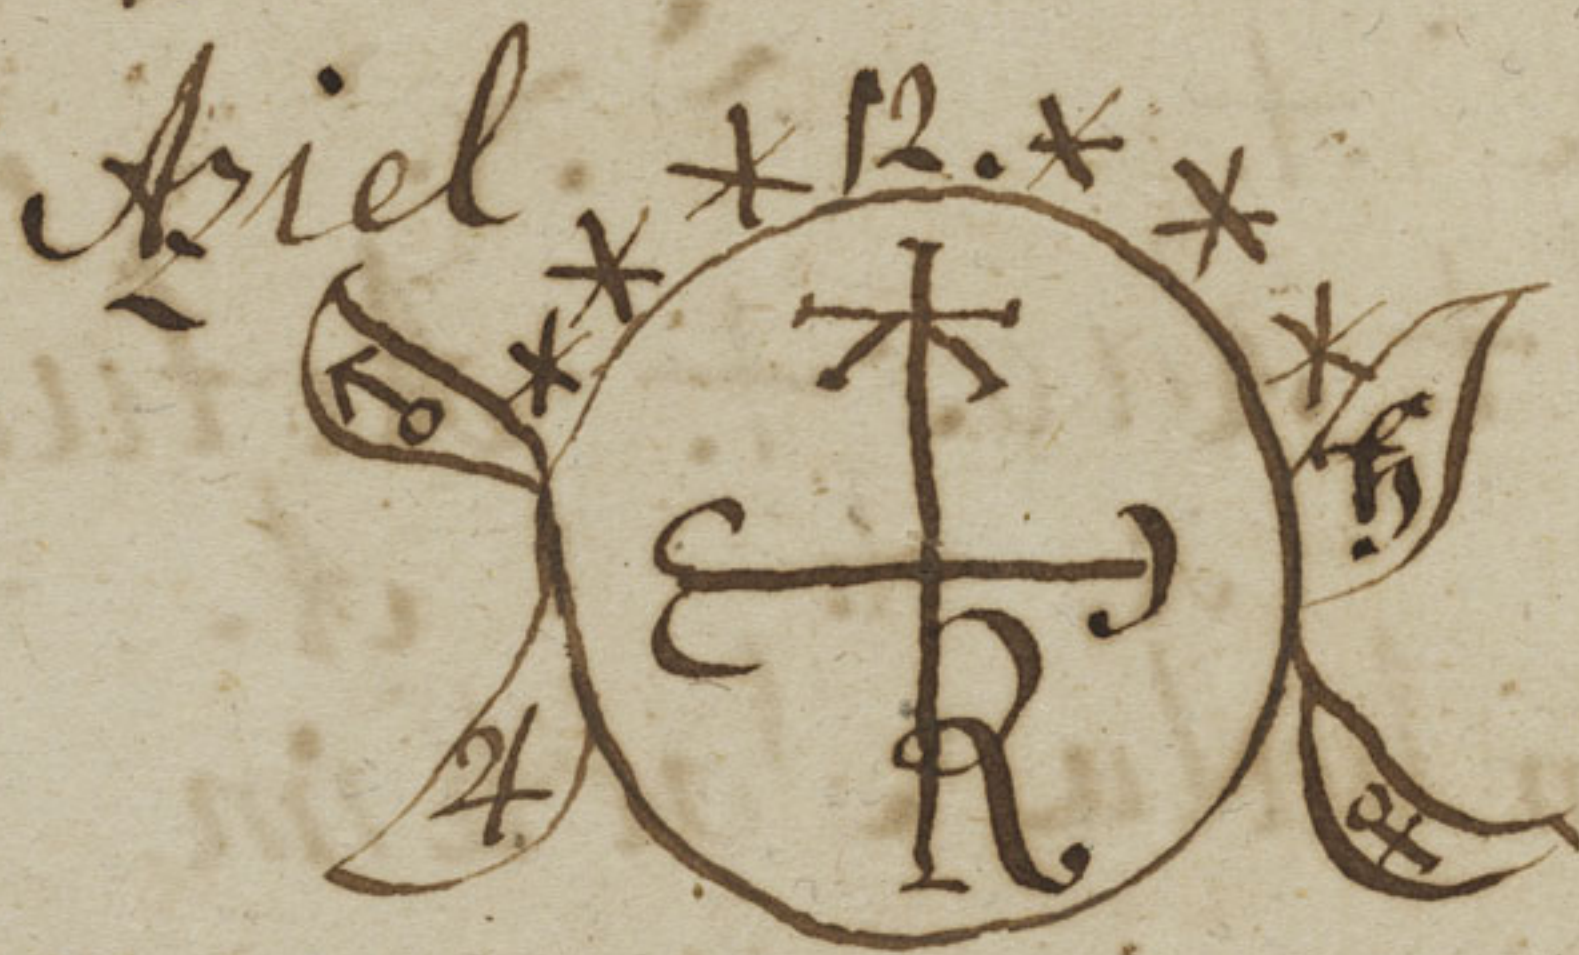 Aziel
* * * 12. * * *
♂ ♄
R
♃ ♀